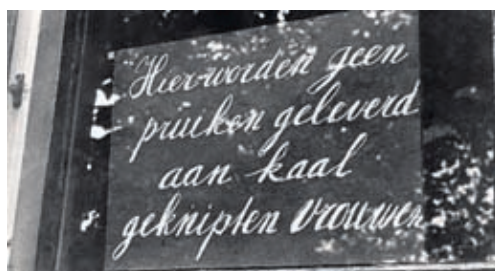 Hier worden geen
pruiken geleverd
aan kaal
geknipten vrouwen